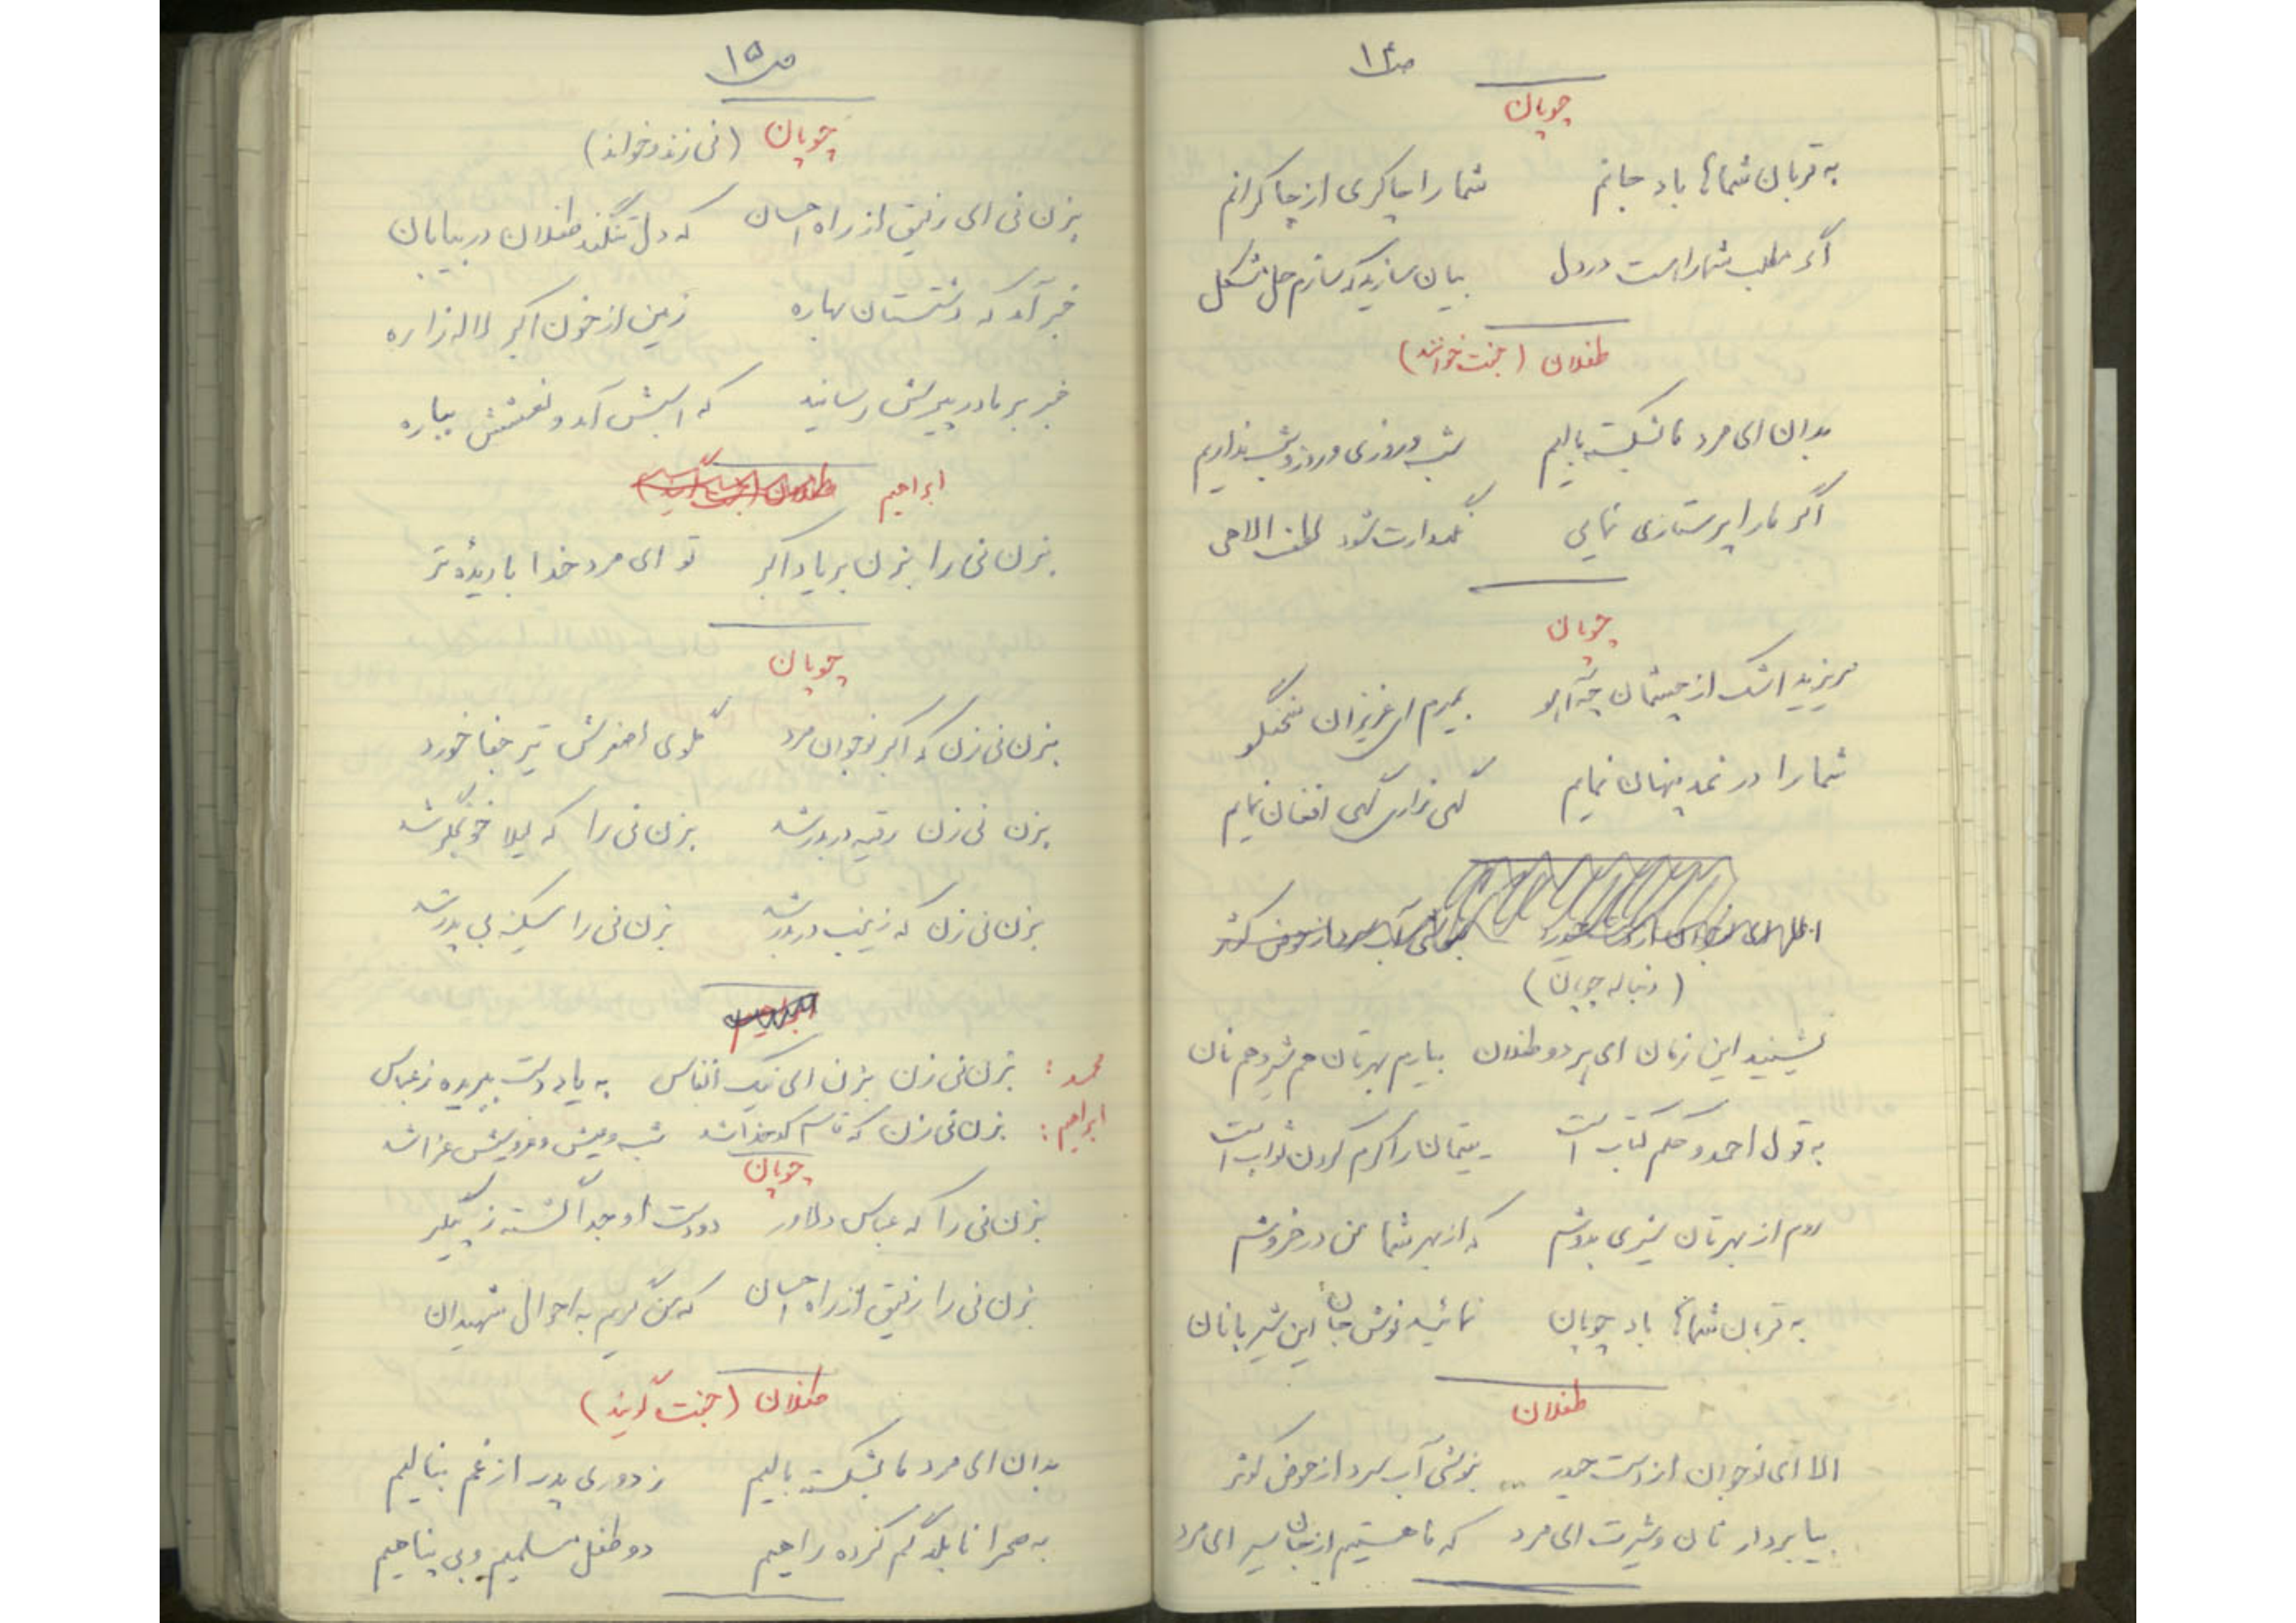 ص ۱۴
چوپان
به قربان شماها باد جانم شما را چاکری از چاکرانم
اگر مطلب شما راست در دل بیان سازید که سازم حل مشکل
طفلان (جفت خوانند)
بدان ای مرد ما بشکسته بالیم شب و روزی و روز و شب نداریم
اگر ما را پرستاری نمایی نگهدارت شود لطف الاهی
چوپان
مریزید اشک از چشمان چه آهو بمیرم ای عزیزان سخنگو
شما را در نمد پنهان نمایم گهی زاری گهی افغان نمایم
(دنباله چوپان)
نشینید این زمان ای هر دو طفلان بیارم بهرتان هم شیر و هم نان
به قول احمد و حکم کتاب است یتیمان را کرم کردن ثواب است
روم از بهرتان شیری بدوشم که از بهر شما من در خروشم
به قربان شماها باد چوپان نمائید نوش جان این شیر با نان
طفلان
الا ای نوجوان از دست حیدر ... بنوشی آب سرد از حوض کوثر
بیا بردار نان و شیرت ای مرد که ما هستیم از جان سیر ای مرد
ص ۱۵
چوپان (نی زند و خواند)
بزن نی ای رفیق از راه احسان که دل تنگند طفلان در بیابان
خبر آمد که دشتستان بهاره زمین از خون اکبر لاله زاره
خبر بر مادر پیرش رسانید که اسبش آمد و نعشش بیاره
ابراهیم طفلان (جفت گویند)
بزن نی را بزن بر یاد اکبر تو ای مرد خدا با دیدهٔ تر
چوپان
بزن نی زن که اکبر نوجوان مرد گلوی اصغرش تیر جفا خورد
بزن نی زن رقیه دربدر شد بزن نی را که لیلا خونجگر شد
بزن نی زن که زینب دربدر شد بزن نی را سکینه بی پدر شد
ابراهیم
محمد: بزن نی زن بزن ای نیک انفاس به یاد دست ببریده ز عباس
ابراهیم: بزن نی زن که قاسم کدخدا شد شب عیش و عروسیش عزا شد
چوپان
بزن نی را که عباس دلاور دو دست او جدا گشته ز پیکر
بزن نی را رفیق از راه احسان که من گریم به احوال شهیدان
طفلان (جفت گویند)
بدان ای مرد ما بشکسته بالیم ز دوری پدر از غم بنالیم
به صحرا نابلد گم کرده راهیم دو طفل مسلمیم و بی پناهیم